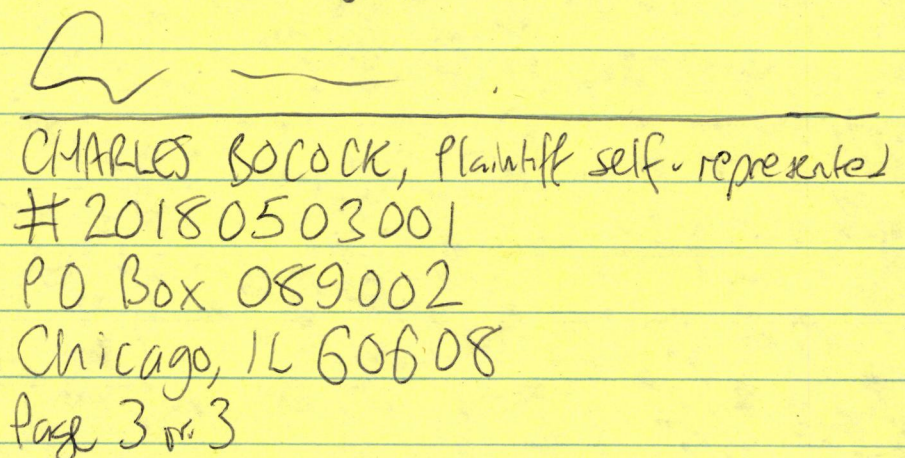 CHARLES BOCOCK, Plaintiff self-represented
#20180503001
PO Box 089002
Chicago, IL 60608
Page 3 of 3